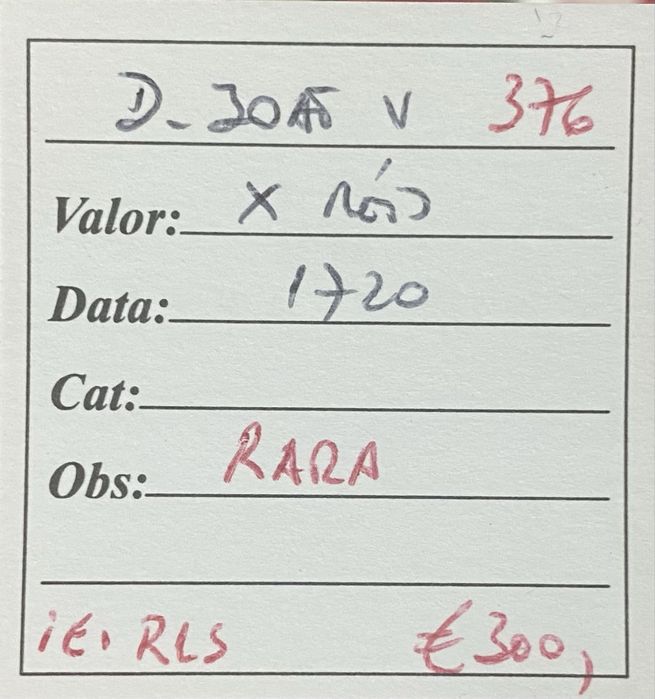 D. JOÃO V 376
Valor: X Réis
Data: 1720
Cat:
Obs: RARA
iE. RLS €300,